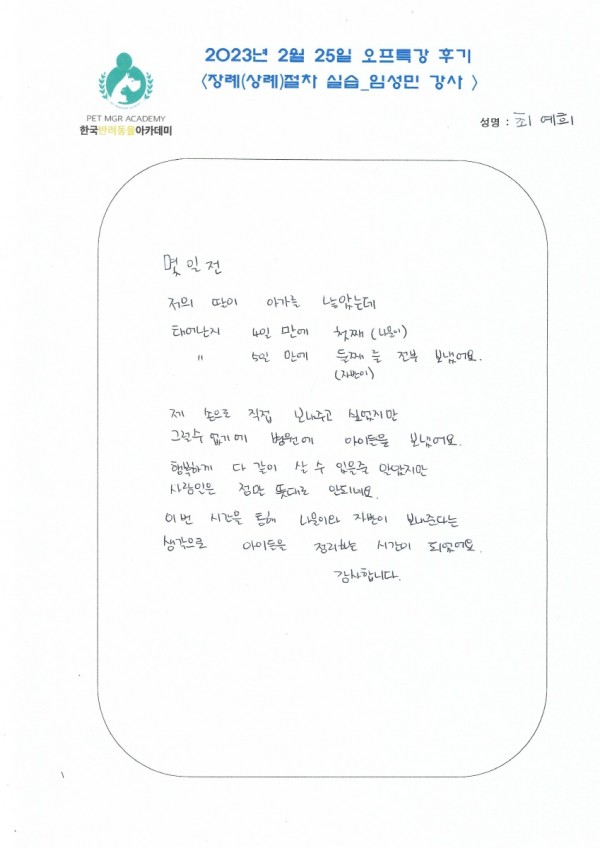 2023년 2월 25일 오프특강 후기
<장례(상례)절차 실습_임성민 강사 >
PET MGR ACADEMY
한국반려동물아카데미
성명 : 최예희
몇일전
저의 딸이 아가를 낳았는데
태어난지 4일 만에 첫째 (나물이)
〃 5일 만에 둘째를 전부 보냈어요.
(자반이)
제 손으로 직접 보내주고 싶었지만
그럴수 없기에 병원에 아이들을 보냈어요.
행복하게 다 같이 살 수 있을줄 알았지만
사람일은 정말 뜻대로 안되네요.
이번 시간을 통해 나물이와 자반이 보내준다는
생각으로 아이들을 정리하는 시간이 되었어요.
감사합니다.